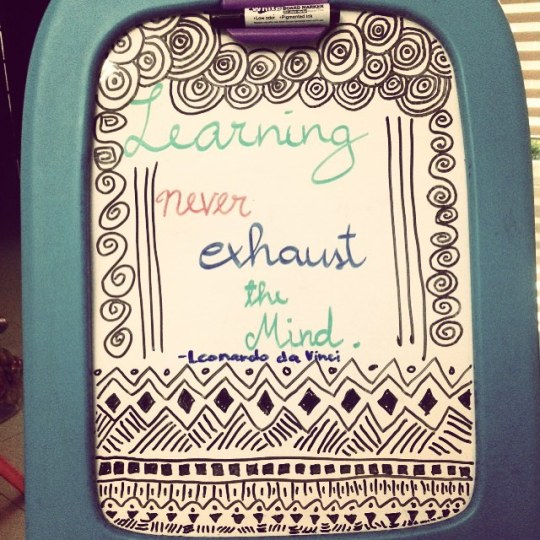 BOARD MARKER
•Low odor •Pigmented ink
Learning
never
exhaust
the
Mind.
-Leonardo da Vinci